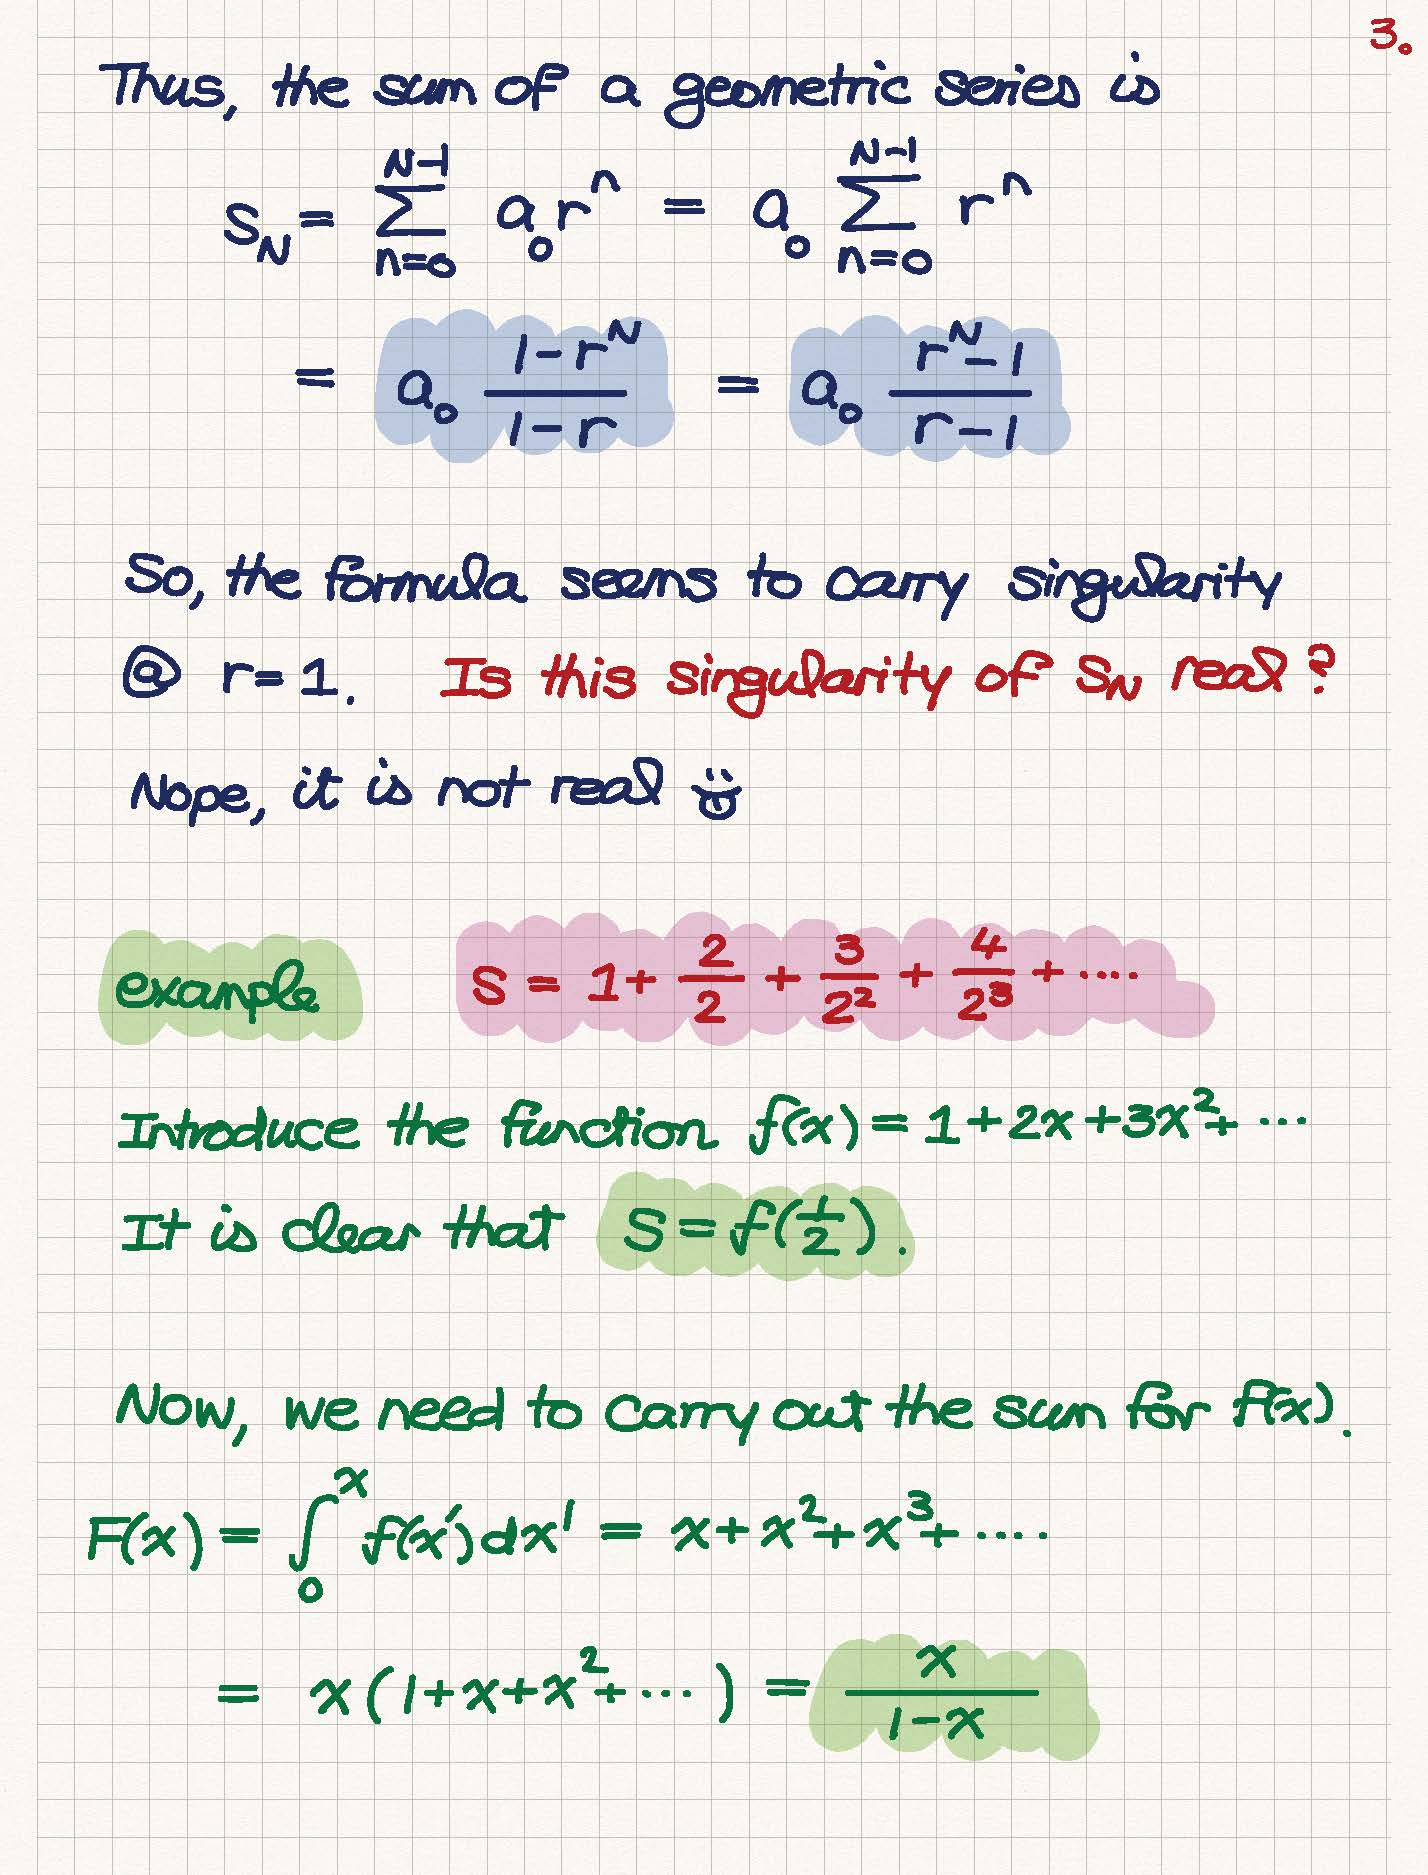 3.
Thus, the sum of a geometric series is
S_N = \sum_{n=0}^{N-1} a_0 r^n = a_0 \sum_{n=0}^{N-1} r^n
= a_0 \frac{1-r^N}{1-r} = a_0 \frac{r^N-1}{r-1}
So, the formula seems to carry singularity
@ r=1. Is this singularity of S_N real?
Nope, it is not real
example S = 1 + \frac{2}{2} + \frac{3}{2^2} + \frac{4}{2^3} + ....
Introduce the function f(x) = 1+2x+3x^2+ ...
It is clear that S = f(\frac{1}{2}).
Now, we need to carry out the sum for f(x).
F(x) = \int_0^x f(x')dx' = x+x^2+x^3+ ....
= x(1+x+x^2+ ...) = \frac{x}{1-x}